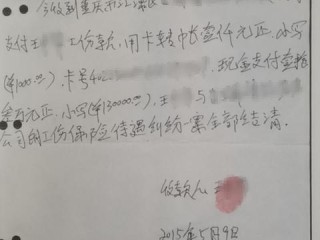 今收到重庆市江
支付王 工伤款,用卡转帐壹仟元正,小写
(¥1000.00),卡号 现金支付壹拾
叁万元正,小写(¥130000.00),王 与
公司的工伤保险待遇纠纷一案全部结清.
收款人:王
2015年5月9日